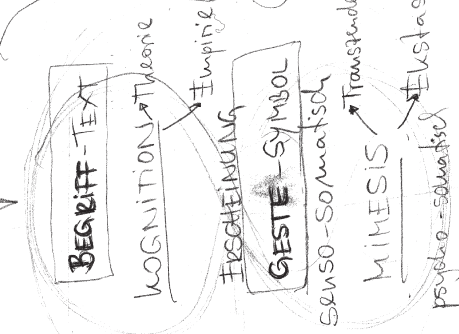 BEGRIFF-TEXT
KOGNITION
Theorie
Empirie
ERSCHEINUNG
GESTE-SYMBOL
senso-somatisch
MIMESIS
psycho-somatisch